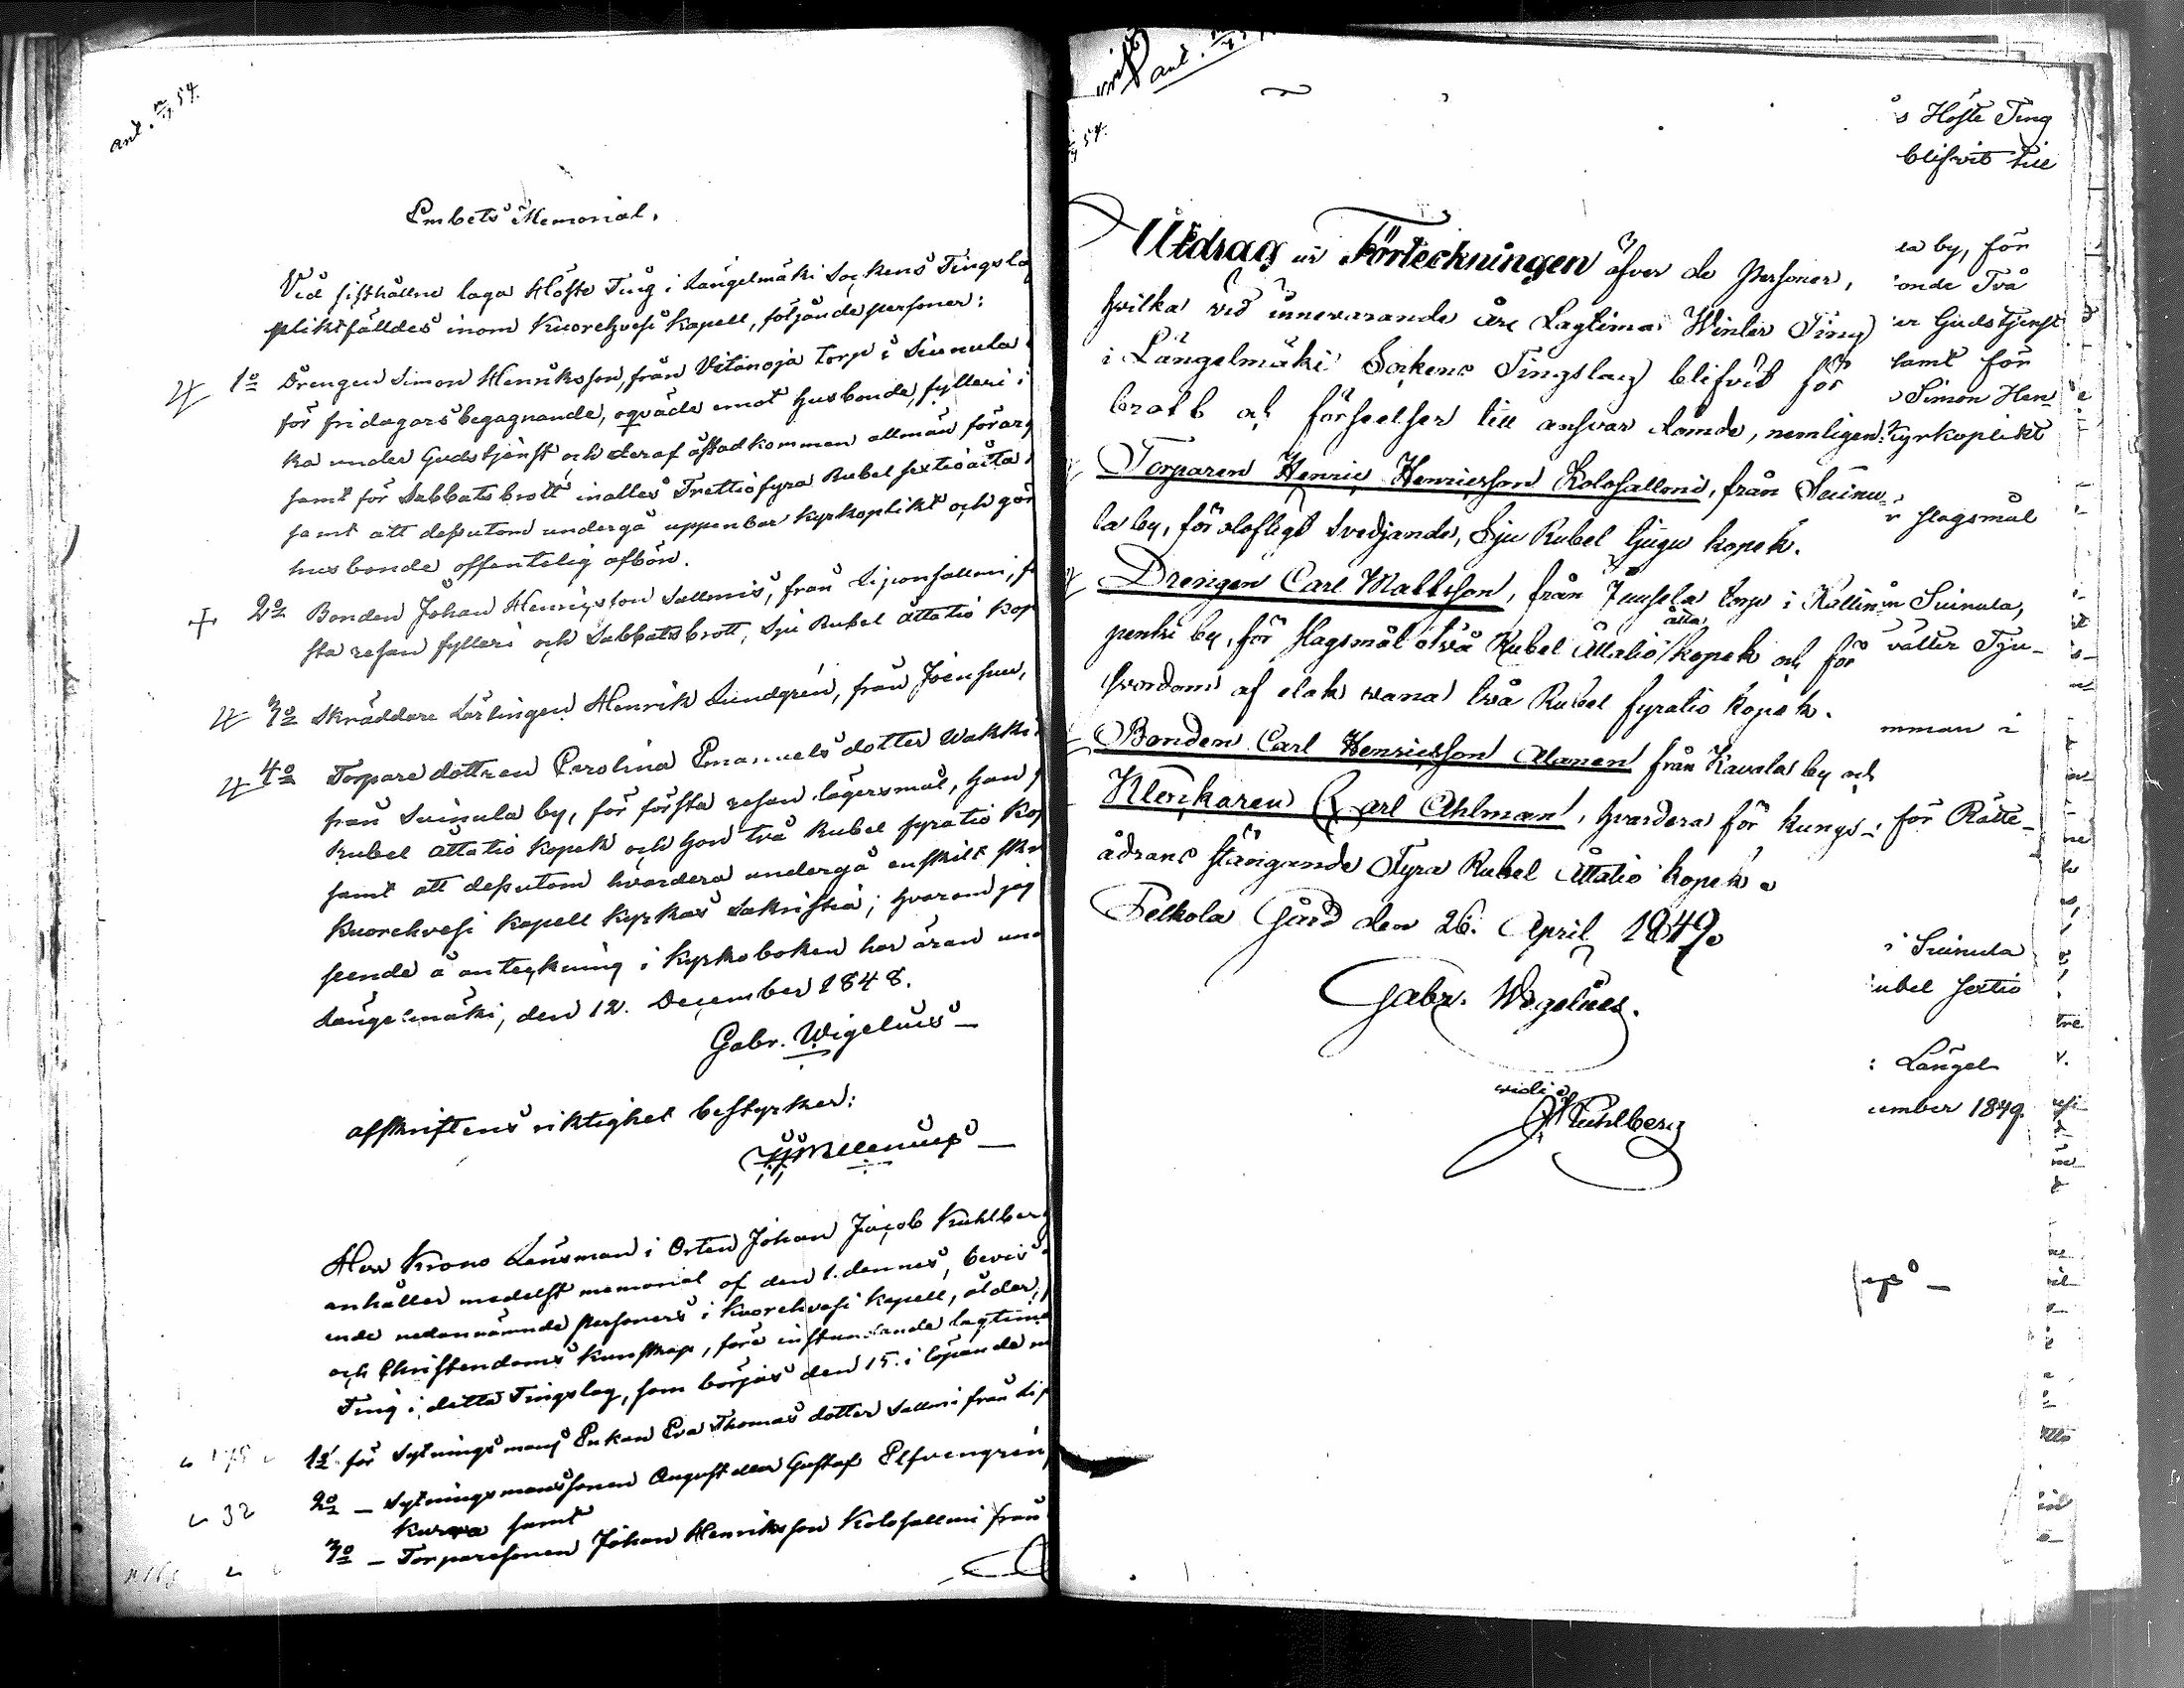 ant. 54.
Embets Memorial.
Vid sisthållne laga Höste Ting i Längelmäki Sockens Tingsla
pliktfälldes inom Kuorehvesi Kapell, följande personer:
1o Drengen Simon Henriksson, från Vitanoja torp i Suinula
för fridagars begagnande, oqväde emot husbonde, fylleri i
ka under Gudstjenst och deraf åstadkommen allmän förarg
samt för Sabbatsbrott inalles Trettiofyra Rubel sextioåtta
samt att dessutom undergå uppenbar Kyrkoplikt och gör
husbonde offentelig afbön.
2o Bonden Johan Henrigsson Sallmis, från Siponsallmi, f
sta resan fylleri och Sabbatsbrott, Sju Rubel åttatio kop
3o Skräddare Lärlingen Henrik Lindgrén, från Joensuu,
4o Torpare dottren Carolina Emanuels dotter Wakki
från Suinula by, för första resan lägersmål, han
Rubel åttatio kopek och hon två Rubel fyratio kop
samt att dessutom hvardera undergå enskilt skr
Kuorehvesi Kapell Kyrkas Sakristia; hvarom jag
seende å anteckning i Kyrkoboken har äran und
Längelmäki, den 12. December 1848.
Gabr. Wigelius
afskriftens riktighet bestyrker:
Herr Krono Länsman i Orten Johan Jacob Kuhlberg
anhåller medelst memorial af den 1. dennes, bevis
ende nedannämnde personers i Kuorehvesi Kapell, ålder,
och Christendoms kunskap, före instundande lagtima
Ting i detta Tingslag, som börjas den 15. i löpande m
175 1o för Sytningsmans Enkan Eva Thomas dotter Sallmi från Lip
32 2o — Sytningsmanssonen August eller Gustaf Elfvengrén
samt
3o — Torparesonen Johan Henriksson Kolosallmi från
ant.
54.
Utdrag ur Förteckningen öfver de Personer,
hvilka vid innevarande års Lagtima Winter Ting
i Längelmäki Sockens Tingslag blifvit för
brott och förseelser till ansvar dömde, nemligen:
Torparen Henric Henricsson Kolosallmi, från Suinu
la by, för olofligt svedjande, Sju Rubel tjugu kopek.
Drengen Carl Mattsson, från Juusela torp i Kallin
penki by, för slagsmål två Rubel Åttatio åtta kopek och för
hordom af elak vana två Rubel fyratio kopek.
Bonden Carl Henricsson Alanen från Kavala by och
Klenkaren Carl Ahlman, hvardera för kungs-
ådrans stängande Fyra Rubel Åttatio kopek.
Pelkola Gård den 26. April 1849.
Gabr. Wigelius.
vidi
Kuhlberg
s Höste Ting
blifvit till
la by, för
onde Två
er Gudstjenst
samt för
Simon Hen
Kyrkoplikt
slagsmål
Suinula,
vätter Tju-
mman i
för Rätte-
i Suinula
ubel sextio
: Längel
cember 1849.